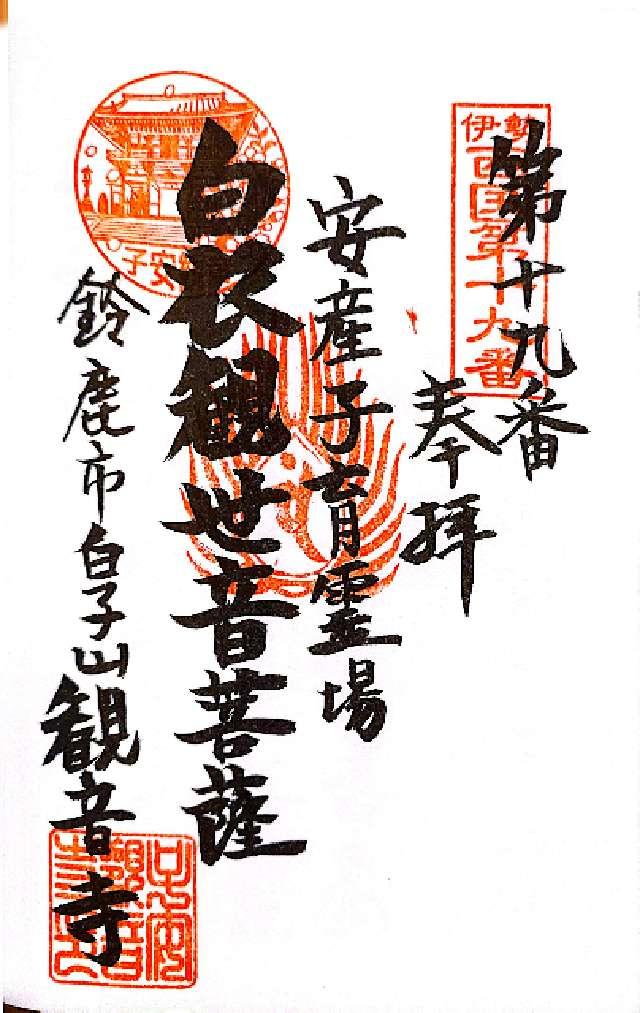 第十九番
伊勢
西国第十九番
奉拝
安産子育霊場
白衣観世音菩薩
鈴鹿市白子山観音寺